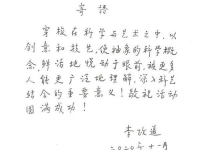 寄语
穿梭在科学与艺术之中,以
创意和技艺,使抽象的科学概
念,鲜活地悦动于眼前,被更多
人能更广泛地理解,深入科艺
结合的重要意义!敬祝活动
圆满成功!
李政道
2020年十一月